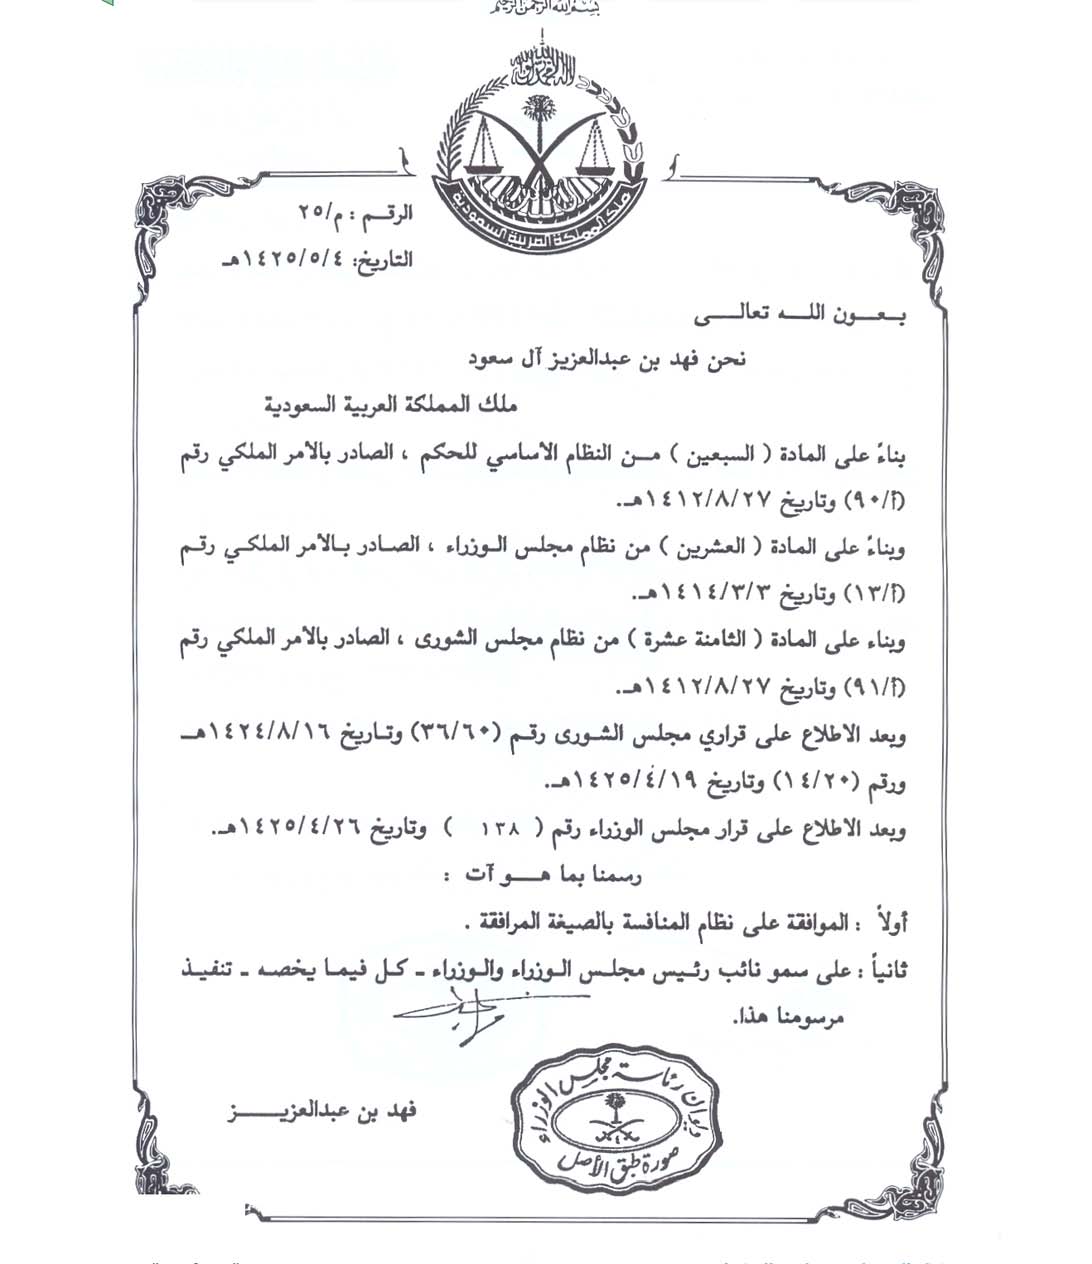 بسم الله الرحمن الرحيم
لا إله إلا الله محمد رسول الله
ملك المملكة العربية السعودية
الرقم : م/٢٥
التاريخ: ١٤٢٥/٥/٤هـ
بـعـــون اللـــه تعالـــى
نحن فهد بن عبدالعزيز آل سعود
ملك المملكة العربية السعودية
بناءً على المادة ( السبعين ) مـن النظام الأساسي للحكم ، الصادر بالأمر الملكي رقم
(أ/٩٠) وتاريخ ١٤١٢/٨/٢٧هـ.
وبناءً على المادة ( العشرين ) من نظام مجلس الـوزراء ، الصـادر بـالأمر الملكـي رقـم
(أ/١٣) وتاريخ ١٤١٤/٣/٣هـ.
وبناء على المادة ( الثامنة عشرة ) من نظام مجلس الشورى ، الصادر بالأمر الملكي رقم
(أ/٩١) وتاريخ ١٤١٢/٨/٢٧هـ.
وبعد الاطلاع على قراري مجلس الشورى رقـم (٣٦/٦٠) وتـاريخ ١٤٢٤/٨/١٦هـ
ورقم (١٤/٢٠) وتاريخ ١٤٢٥/٤/١٩هـ.
وبعد الاطلاع على قرار مجلس الوزراء رقم ( ١٣٨ ) وتاريخ ١٤٢٥/٤/٢٦هـ.
رسمنا بما هـــو آت :
أولاً : الموافقة على نظام المنافسة بالصيغة المرافقة .
ثانياً : على سمو نائب رئـيس مجلـس الـوزراء والـوزراء ـ كـل فيمـا يخصـه ـ تنفيـذ
مرسومنا هذا.
ديوان رئاسة مجلس الوزراء
صورة طبق الأصل
فهد بن عبدالعزيـــــز